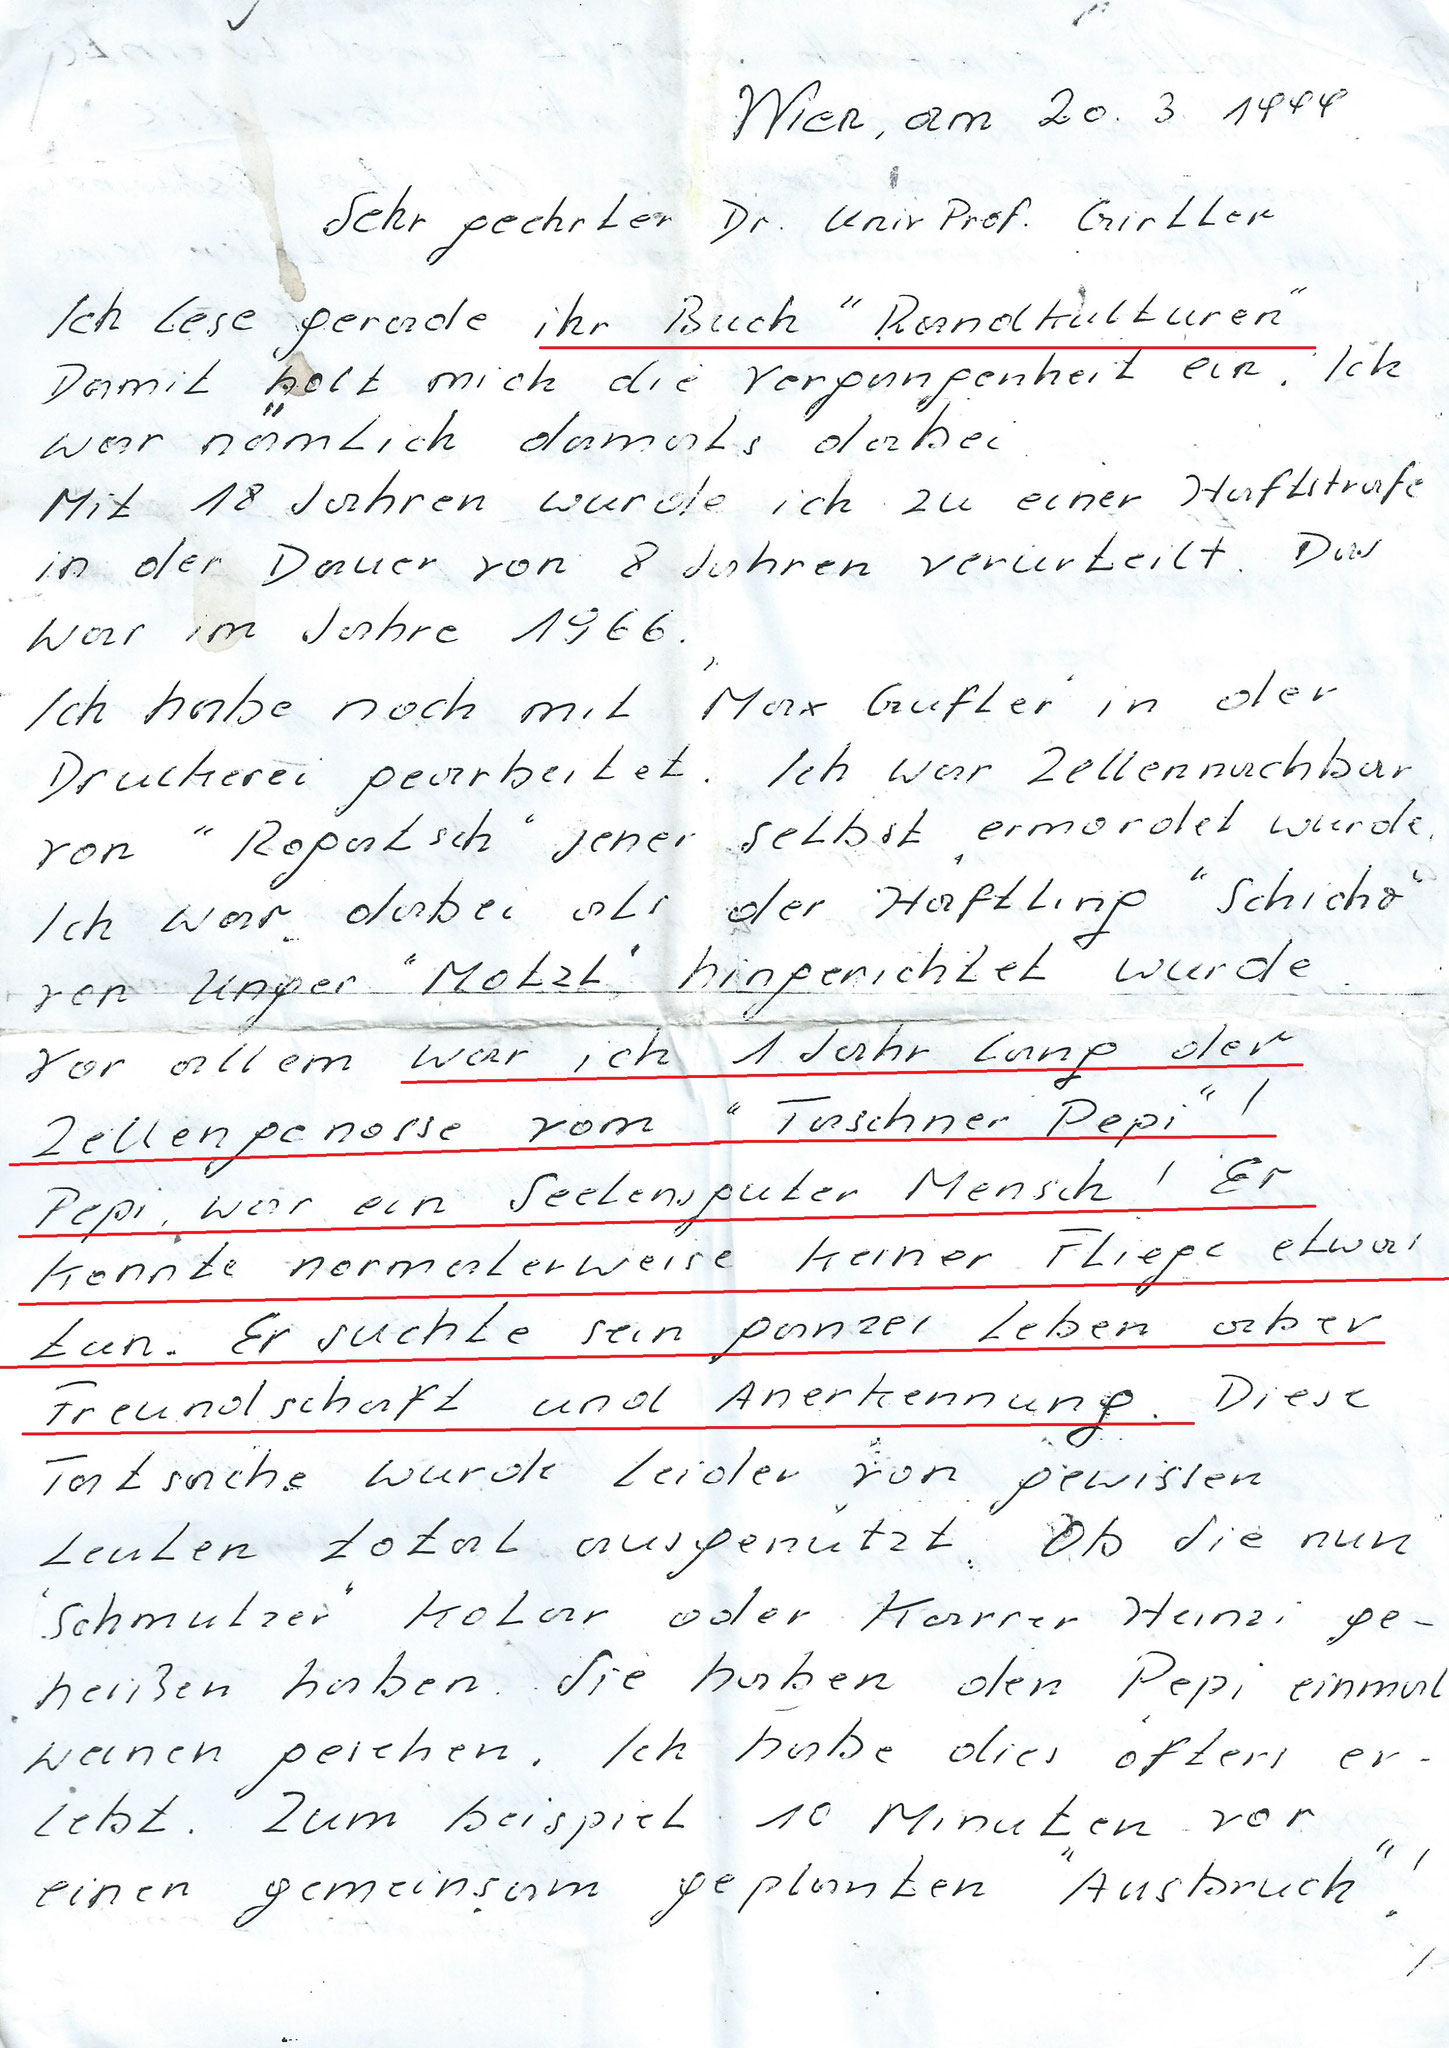 Wien, am 20. 3. 1999
Sehr geehrter Dr. Univ Prof. Girtler
Ich lese gerade ihr Buch "Randkulturen"
Damit holt mich die Vergangenheit ein. Ich
war nämlich damals dabei
Mit 18 Jahren wurde ich zu einer Haftstrafe
in der Dauer von 8 Jahren verurteilt. Das
war im Jahre 1966.
Ich habe noch mit "Max Gufler" in der
Druckerei gearbeitet. Ich war Zellennachbar
von "Rogatsch" jener selbst ermordet wurde.
Ich war dabei als der Häftling "Schicho"
von Unger "Motzt" hingerichtet wurde.
Vor allem war ich 1 Jahr lang der
Zellengenosse vom "Taschner Pepi"!
Pepi, war ein Seelensguter Mensch! Er
konnte normalerweise keiner Fliege etwas
tun. Er suchte sein ganzes Leben aber
Freundschaft und Anerkennung. Diese
Tatsache wurde leider von gewissen
Leuten total ausgenützt. Ob die nun
"Schmutzer" Kotar oder Karrer Heinzi ge-
heißen haben. Sie haben den Pepi einmal
weinen gesehen. Ich habe dies öfters er-
lebt. Zum beispiel 10 Minuten vor
einen gemeinsam geplanten "Ausbruch"!